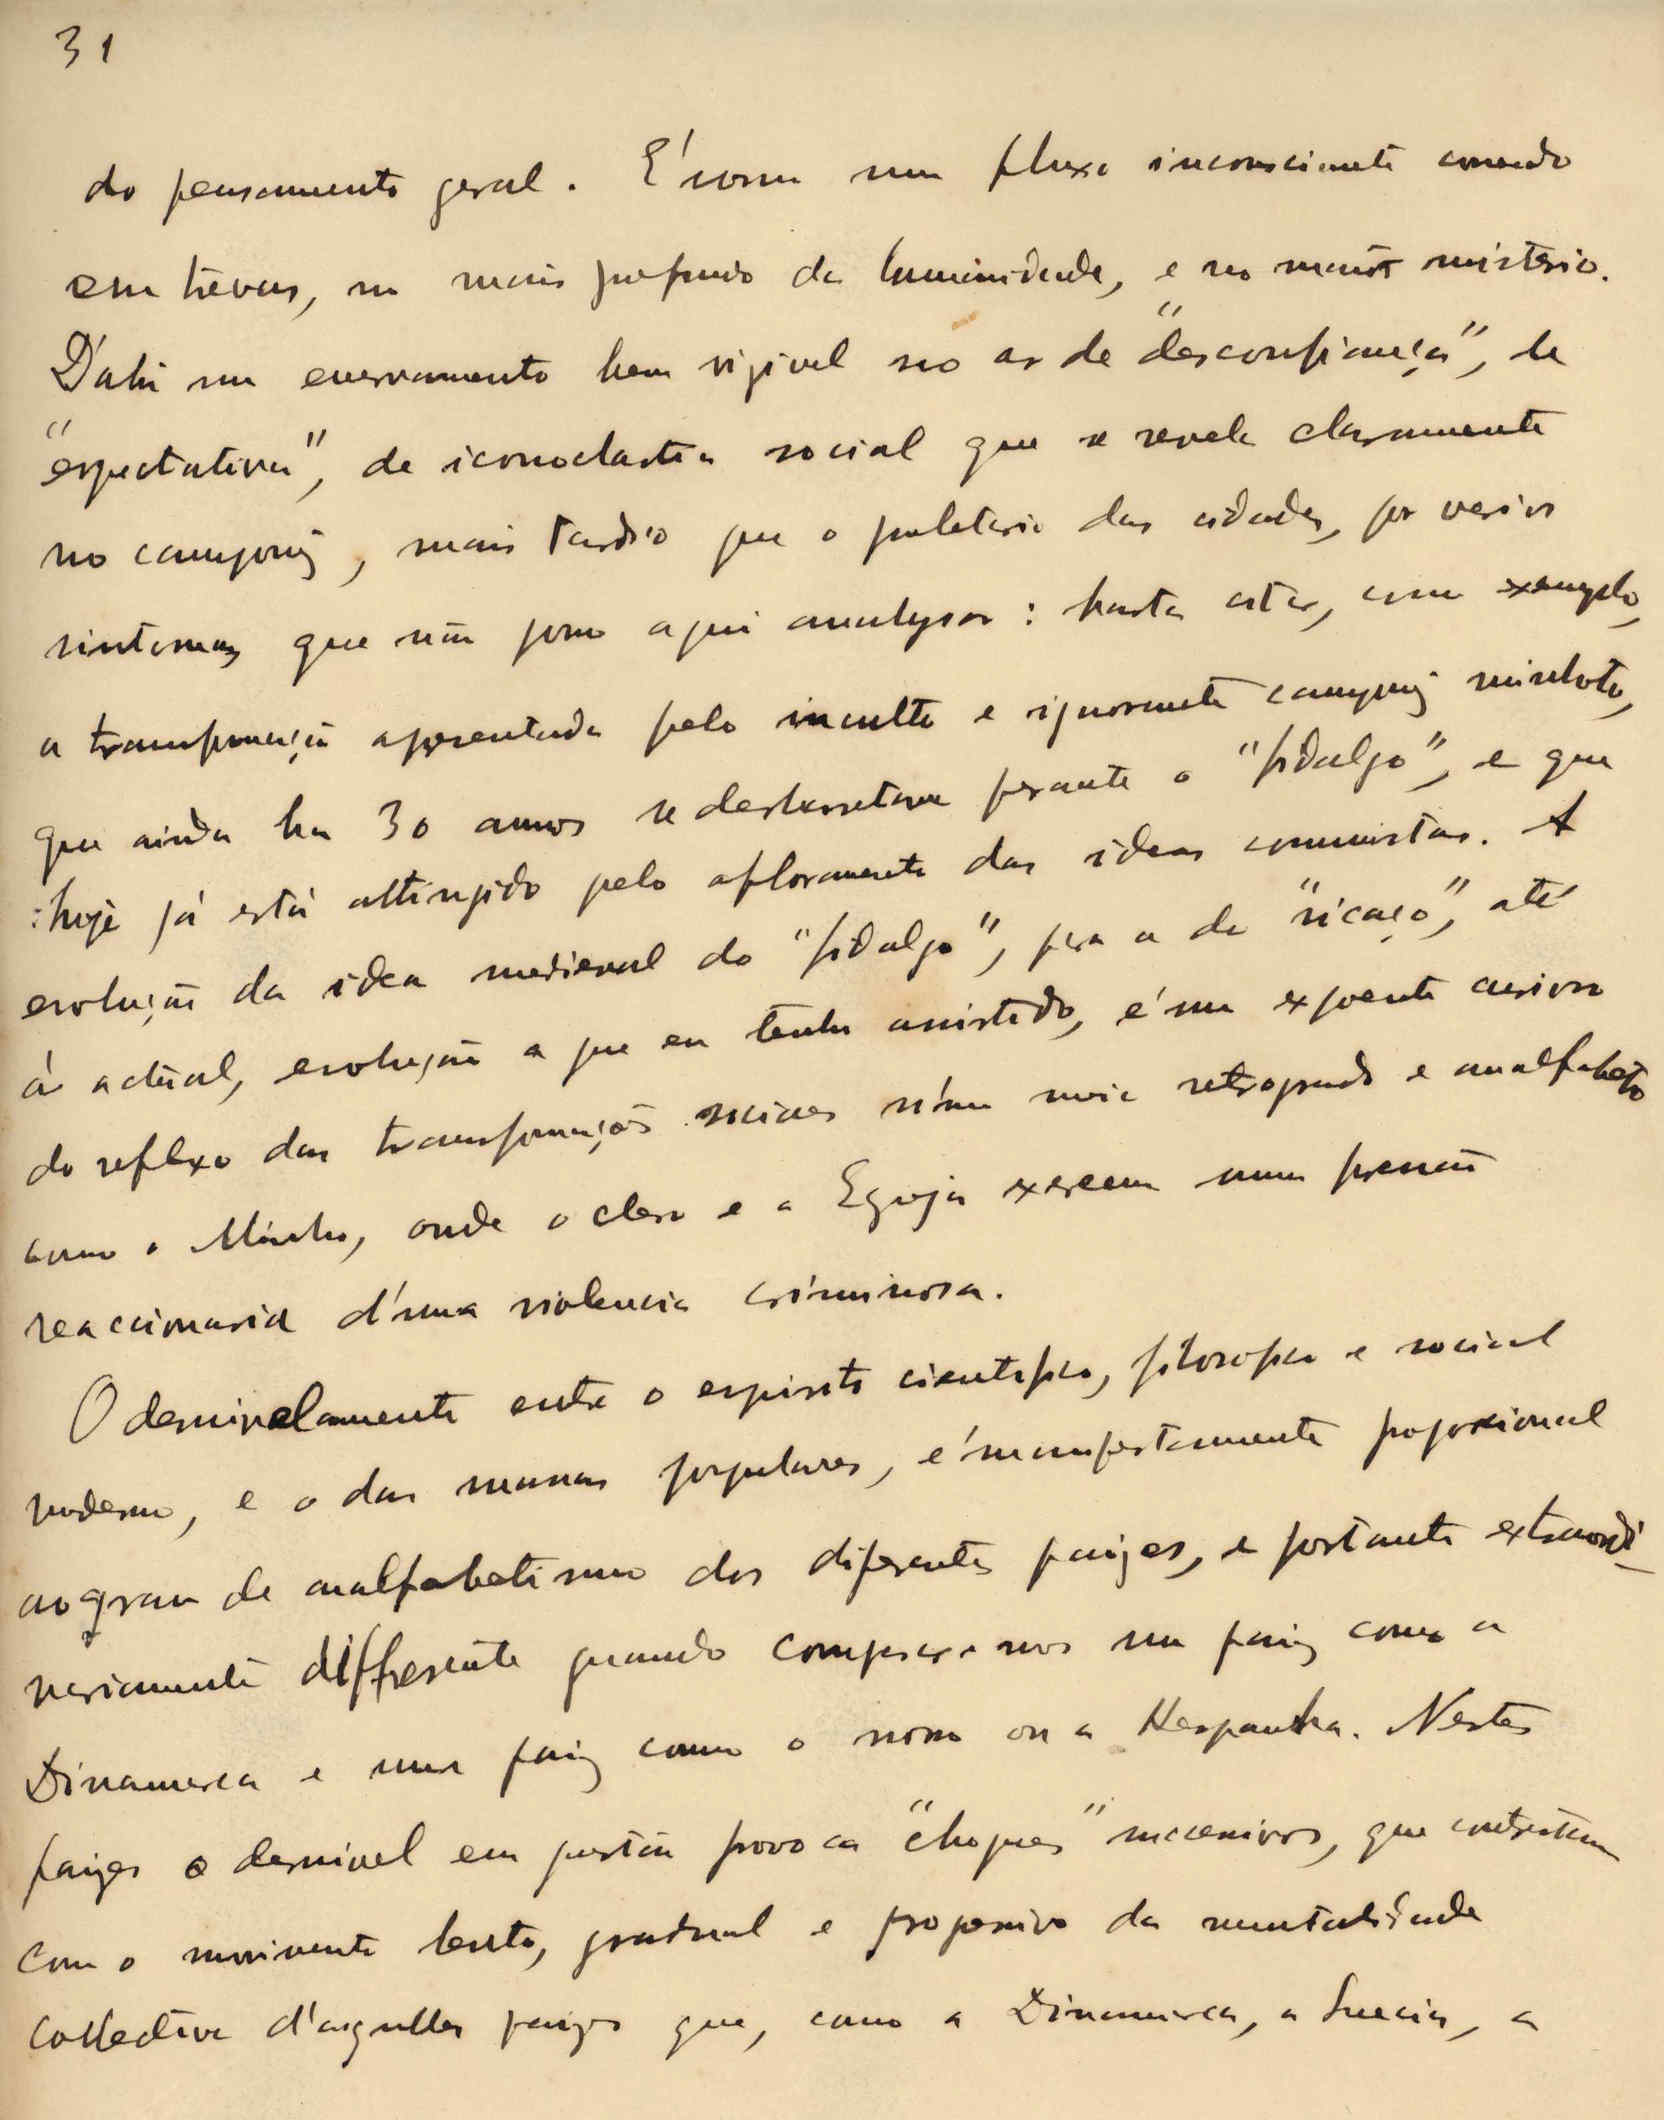 31
do pensamento geral. É como um fluxo inconsciente correndo
em trevas, no mais profundo da humanidade, e no maior misterio.
D'ahi um enervamento bem vizivel no ar de "desconfiança", de
"espectativa", de iconoclastia social que se revela claramente
no camponez, mais tardio que o proletario das cidades, por varios
sintomas que não posso aqui analysar: basta citar, como exemplo,
a transformação apresentada pelo inculto e ignorante camponez minhoto,
que ainda ha 30 annos se desbarretava perante o "fidalgo", e que
hoje já está attingido pelo afloramento das ideas comunistas. A
evolução da idea medieval do "fidalgo", pra a de "ricaço", até
á actual, evolução a que eu tenho assistido, é um expoente curioso
do reflexo das transformações sociaes n'um meio retrogrado e analfabeto
como o Minho, onde o clero e a Egreja exercem uma pressão
reaccionaria d'uma violencia criminosa.
O desnivelamento entre o espirito cientifico, filosofico e social
moderno, e o das massas populares, é manifestamente proporcional
ao grau de analfabetismo dos diferentes paizes, e portanto extraordi-
nariamente diffrente quando comparamos um paiz como a
Dinamarca e um paiz como o nosso ou a Hespanha. Nestes
paizes o desnivel em questão provoca "choques" sucessivos, que contrastam
com o movimento lento, gradual e progressivo da mentalidade
collectiva d'aquelles paizes que, como a Dinamarca, a Suecia, a